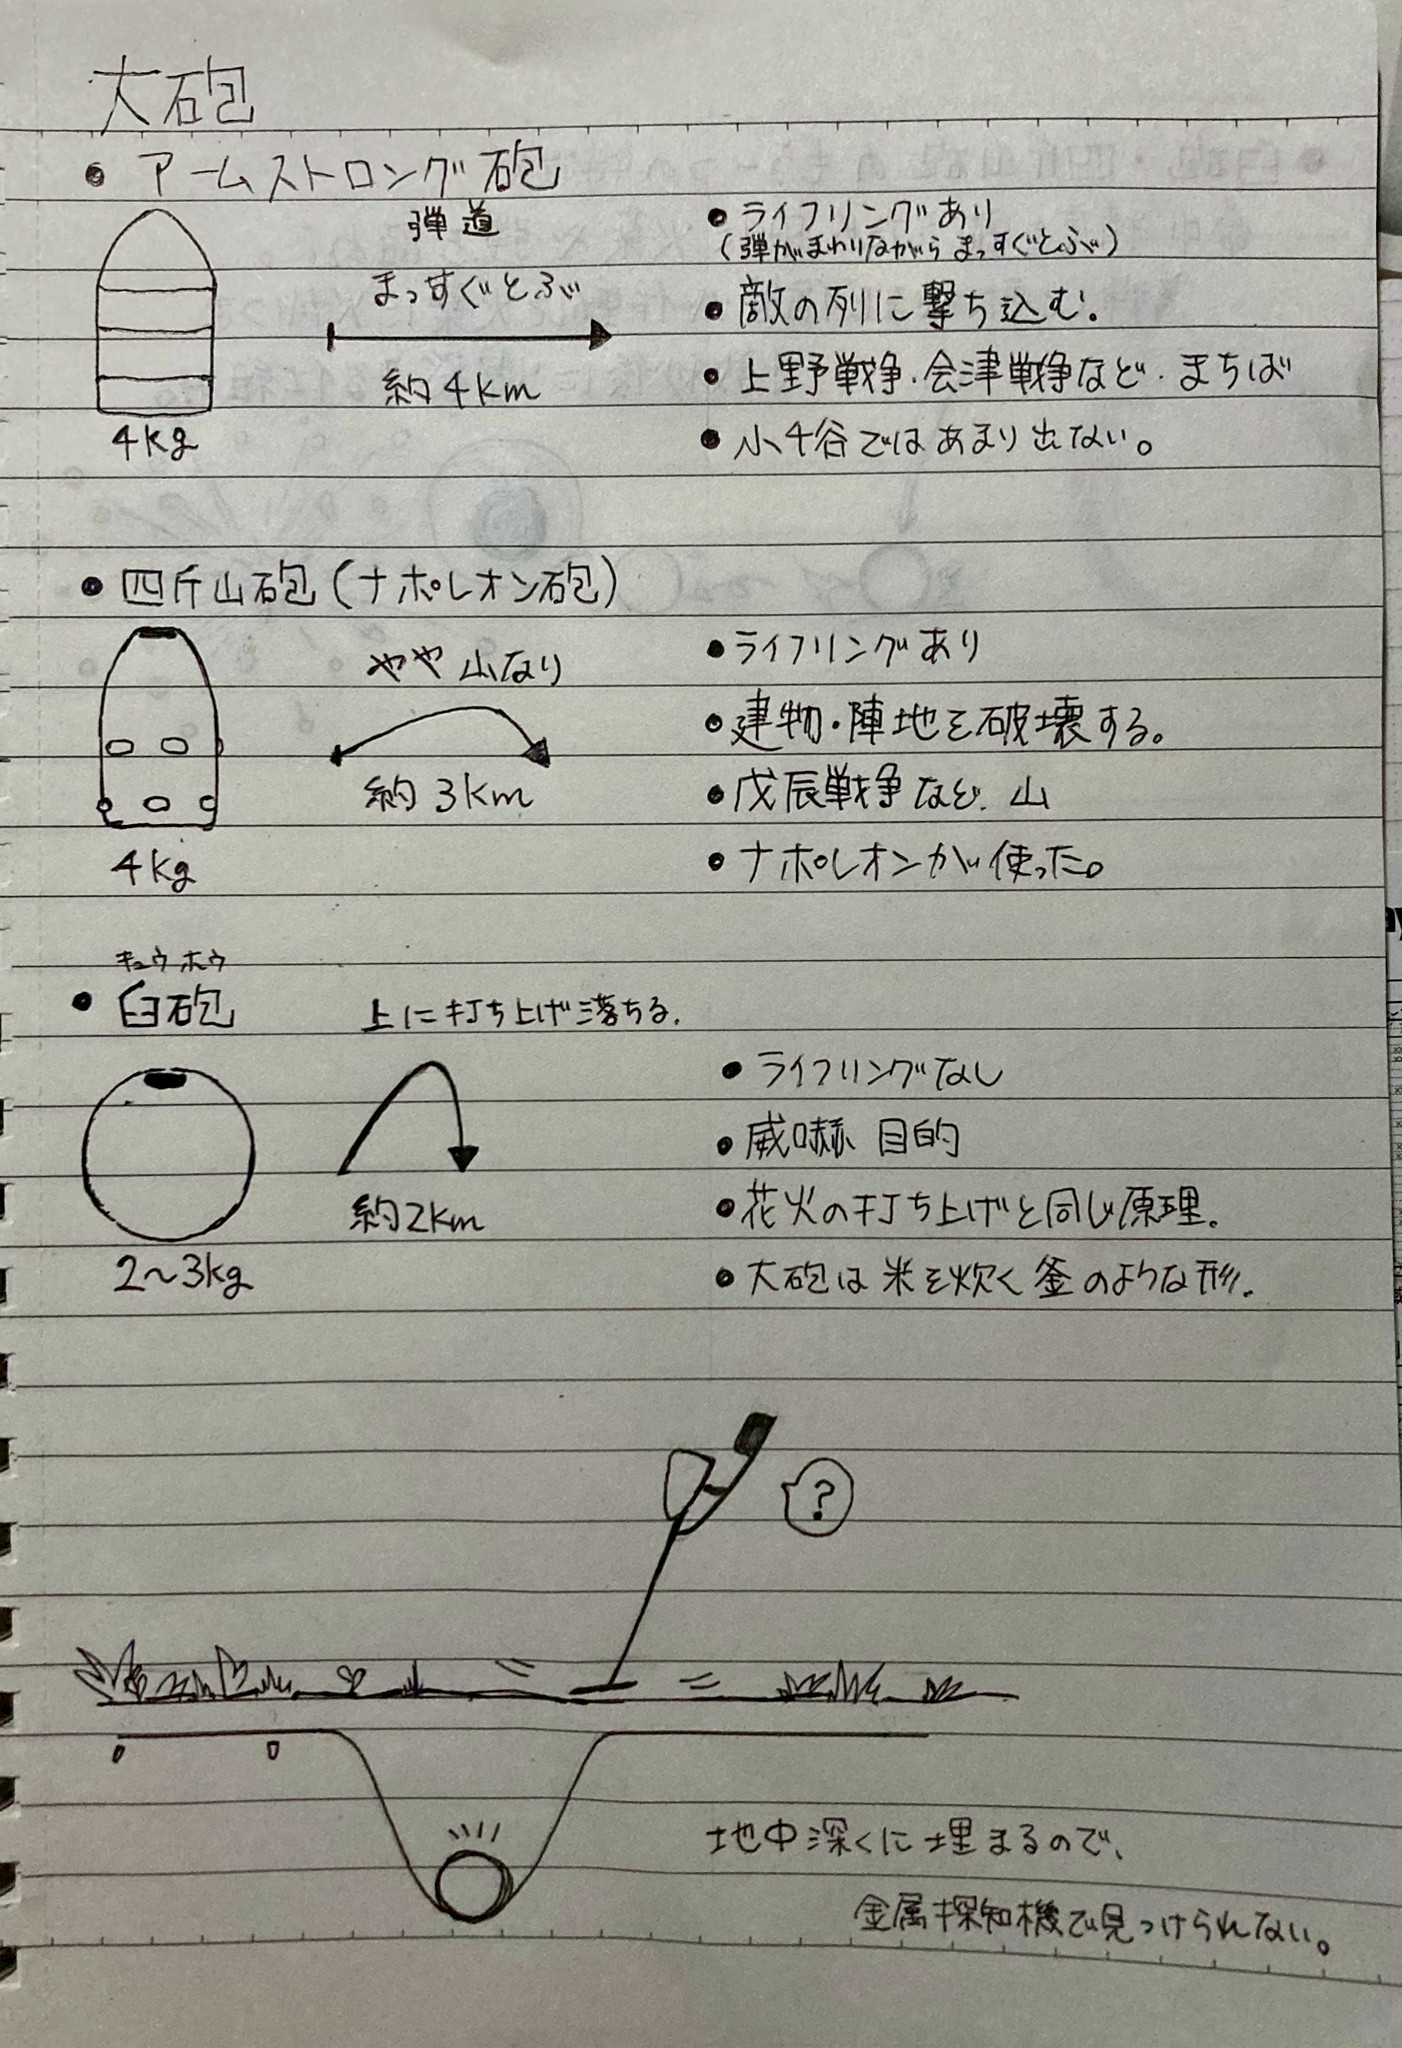 大砲
• アームストロング砲
弾道
まっすぐとぶ
約4km
4kg
• ライフリングあり
(弾がまわりながらまっすぐとぶ)
• 敵の列に撃ち込む.
• 上野戦争・会津戦争など. まちば
• 小千谷ではあまり出ない。
• 四斤山砲(ナポレオン砲)
やや山なり
約3km
4kg
• ライフリングあり
• 建物・陣地を破壊する。
• 戊辰戦争など. 山
• ナポレオンが使った。
キュウホウ
• 臼砲
上に打ち上げ落ちる.
約2km
2〜3kg
• ライフリングなし
• 威嚇目的
• 花火の打ち上げと同じ原理.
• 大砲は米を炊く釜のような形.
?
地中深くに埋まるので、
金属探知機で見つけられない。